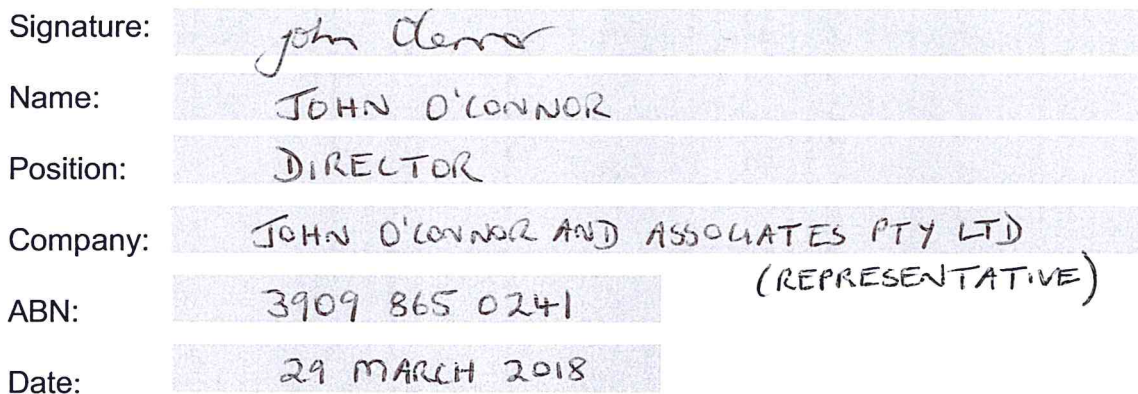 Signature: John O'Connor
Name: JOHN O'CONNOR
Position: DIRECTOR
Company: JOHN O'CONNOR AND ASSOCIATES PTY LTD
(REPRESENTATIVE)
ABN: 3909 865 0241
Date: 29 MARCH 2018